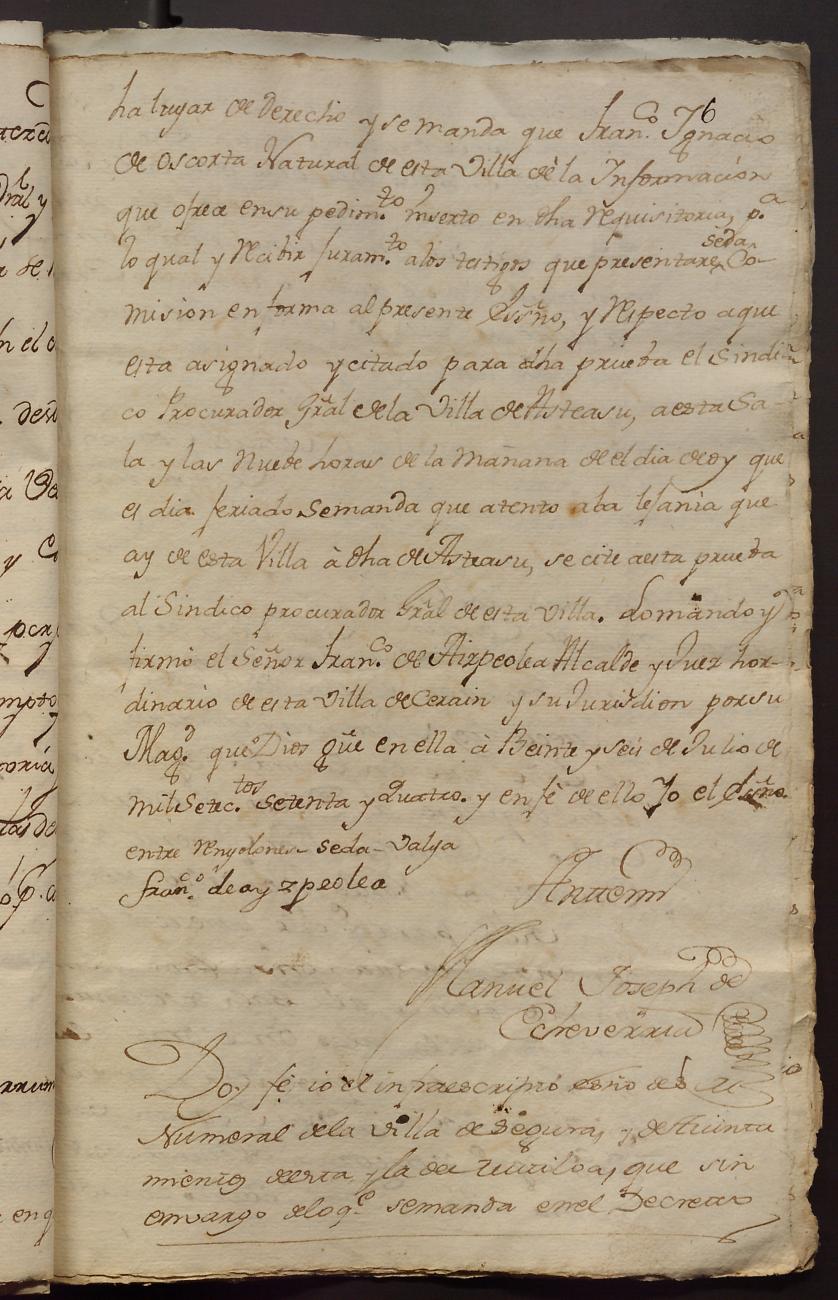 6
ha lugar de derecho y se manda que Fran.co Ignacio
de oscorta Natural de esta Villa dè la Informacion
que ofrece en su pedim.to inserto en dha requisitoria, p.a
lo qual y recibir Juram.to a los testigos que presentare, seda Co-
mision en forma al presente Essno, y respecto a que
esta asignado y citado para dha prueba el Sindi-
co Procurador Gral de la Villa de Asteasu, a esta Sa-
la y las Nuebe horas de la Mañana de el dia de oy que
es dia feriado Semanda que atento a la lejania que
ay de esta Villa à dha de Asteasu, se cite a esta prueba
al Sindico procurador Gral de esta Villa. Lo mando y
firmó el Señor Fran.co de Aizpeolea Alcalde y Juez hor-
dinario de esta Villa de Cerain y su Jurisdion por su
Mag.d que Dios gûe en ella à Beinte y seis de Julio de
mil Setec.tos setenta y quatro. y en fé de ello Yo el Essno
entre renglones - seda - Valga
fran.co de ayzpeolea
Antemi
Manuel Joseph de
Echeverria
Doy fé io el infraescripto essno de S. M.
Numeral de la Villa de Segura, y de Aiunta
miento desta y la de Zumiloa, que sin
envargo de lo q.e semanda en el Decreto